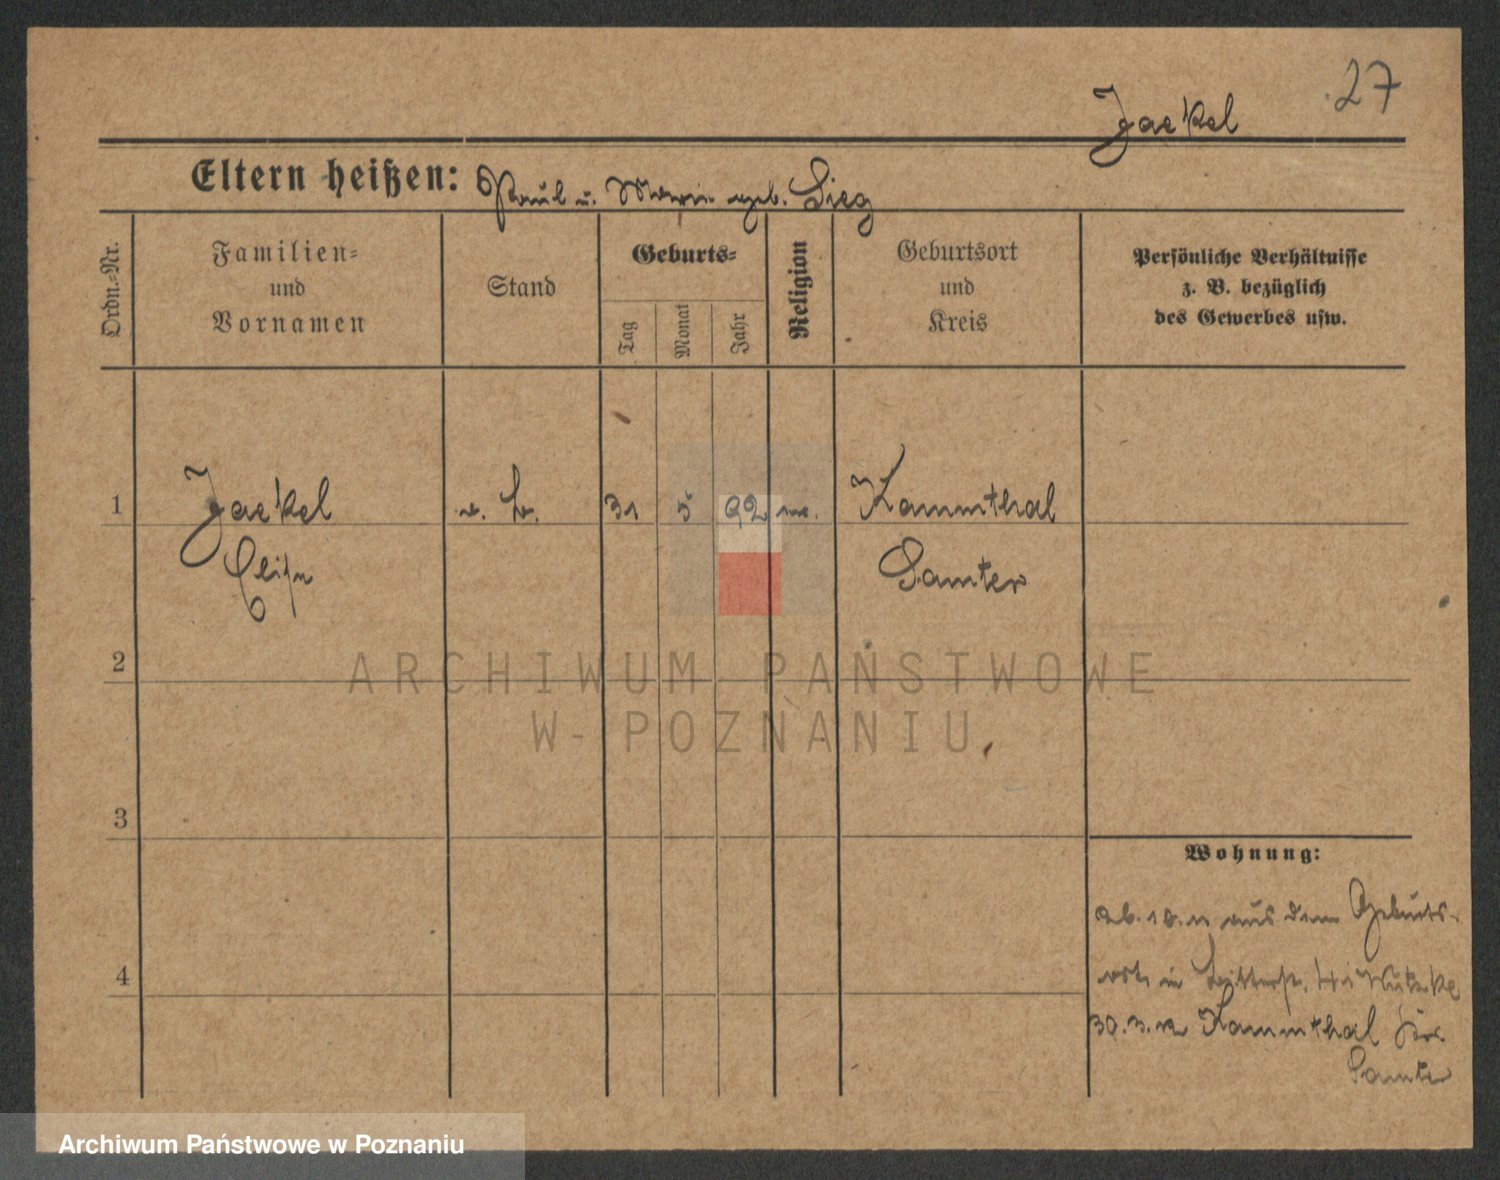 27
Jaekel
Eltern heißen: Paul u. Marie geb. Sieg
Ordn.-Nr.
Familien-
und
Vornamen
Stand
Geburts-
Tag
Monat
Jahr
Religion
Geburtsort
und
Kreis
Persönliche Verhältnisse
z. B. bezüglich
des Gewerbes usw.
1
Jaekel
31
5
92
Kammthal
Samter
2
ARCHIWUM PAŃSTWOWE
W POZNANIU
3
Wohnung:
4
ab. 18. 11 aus dem Geburts-
orte in
30. 3. 12 Kammthal
Samter
Archiwum Państwowe w Poznaniu